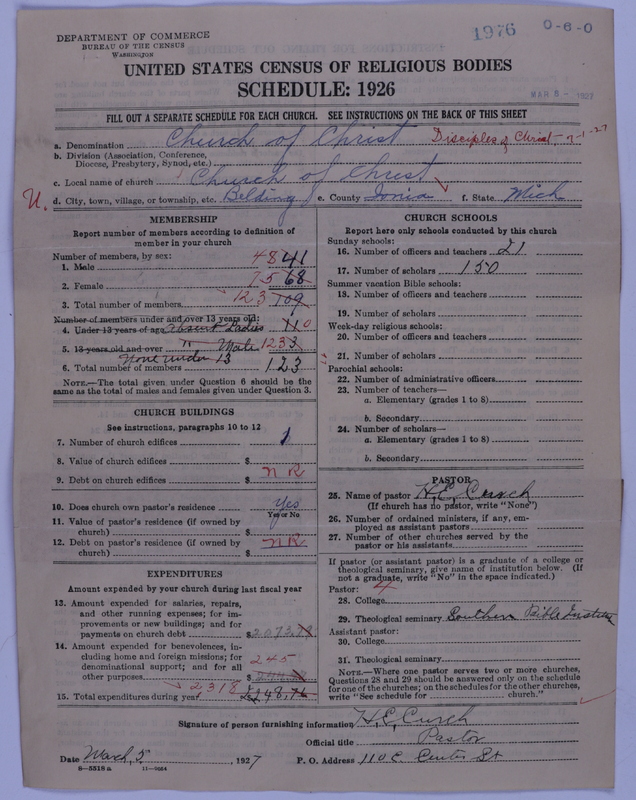 1976
0-6-0
DEPARTMENT OF COMMERCE
BUREAU OF THE CENSUS
WASHINGTON
UNITED STATES CENSUS OF RELIGIOUS BODIES
SCHEDULE: 1926
MAR 8 - 1927
FILL OUT A SEPARATE SCHEDULE FOR EACH CHURCH. SEE INSTRUCTIONS ON THE BACK OF THIS SHEET
a. Denomination Church of Christ Disciples of Christ 7-1-27
b. Division (Association, Conference,
Diocese, Presbytery, Synod, etc.)
c. Local name of church Church of Christ
U. d. City, town, village, or township, etc. Belding e. County Ionia f. State Mich
MEMBERSHIP
Report number of members according to definition of
member in your church
Number of members, by sex:
1. Male 48 41
2. Female 75 68
3. Total number of members 123 109
Number of members under and over 13 years old:
4. Under 13 years of age Absent Ladies 11 0
5. 13 years old and over " Male 123 3
None under 13
6. Total number of members 123
NOTE.—The total given under Question 6 should be the
same as the total of males and females given under Question 3.
CHURCH BUILDINGS
See instructions, paragraphs 10 to 12
7. Number of church edifices 1
8. Value of church edifices $
9. Debt on church edifices $ n R
10. Does church own pastor's residence Yes
Yes or No
11. Value of pastor's residence (if owned by
church) $
12. Debt on pastor's residence (if owned by
church) $ n R
EXPENDITURES
Amount expended by your church during last fiscal year
13. Amount expended for salaries, repairs,
and other running expenses; for im-
provements or new buildings; and for
payments on church debt $ 2073.
14. Amount expended for benevolences, in-
cluding home and foreign missions; for
denominational support; and for all
other purposes $ 245
15. Total expenditures during year 2318 $
CHURCH SCHOOLS
Report here only schools conducted by this church
Sunday schools:
16. Number of officers and teachers 21
17. Number of scholars 150
Summer vacation Bible schools:
18. Number of officers and teachers
19. Number of scholars
Week-day religious schools:
20. Number of officers and teachers
21. Number of scholars
Parochial schools:
22. Number of administrative officers
23. Number of teachers—
a. Elementary (grades 1 to 8)
b. Secondary
24. Number of scholars—
a. Elementary (grades 1 to 8)
b. Secondary
PASTOR
25. Name of pastor H. E.
(If church has no pastor, write "None")
26. Number of ordained ministers, if any, em-
ployed as assistant pastors
27. Number of other churches served by the
pastor or his assistants
If pastor (or assistant pastor) is a graduate of a college or
theological seminary, give name of institution below. (If
not a graduate, write "No" in the space indicated.)
Pastor: 4
28. College
29. Theological seminary Southern Bible Institute
Assistant pastor:
30. College
31. Theological seminary
NOTE.—Where one pastor serves two or more churches,
Questions 28 and 29 should be answered only on the schedule
for one of the churches; on the schedules for the other churches,
write "See schedule for church."
Signature of person furnishing information H. E.
Official title Pastor
Date March 5, 1927 P. O. Address 110 E. Center St
8-5518 a 11-9084